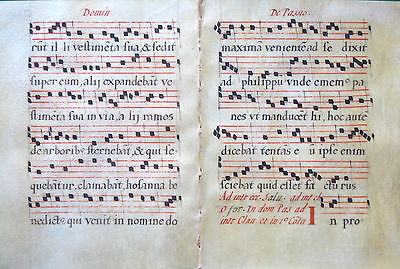 Domin
rūt il li vestimēta sua, & sedit
super eum, alij expandebāt ve
stimēta sua in via, alij ramos
de arboribꝰ sternebāt, & qui se
quebātur, clamabāt, hosanna be
nedictꝰ qui venit in nomine do
De Passio.
maximā venientē ad se dixit
ad philippū vnde ememꝰ pa
nes vt manducēt hi, hoc autē
dicebat tentās eū ipse enim
sciebat quid esset
Ad intr
Offor. In dom Pas ad
intr
In pro